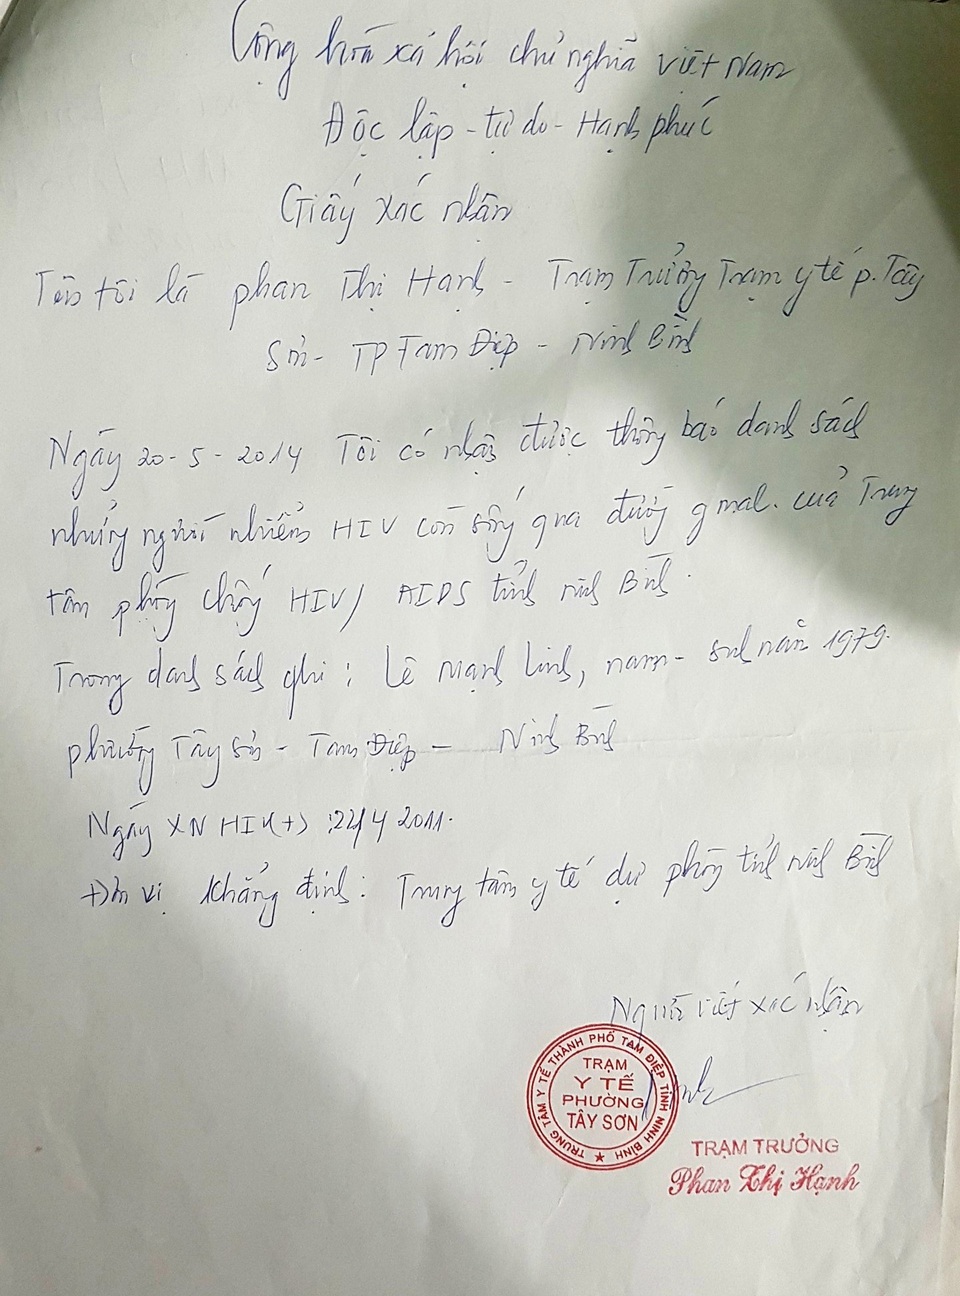 Cộng hòa xã hội chủ nghĩa việt Nam
Độc lập - tự do - Hạnh phúc
Giấy xác nhận
Tên tôi là phan Thị Hạnh - Trạm Trưởng Trạm y tế p. Tây
Sơn - TP Tam Điệp - Ninh Bình
Ngày 20-5-2014 Tôi có nhận được thông báo danh sách
những người nhiễm HIV còn sống qua đường gmal. của Trung
tâm phòng chống HIV/ AIDS tỉnh ninh Bình.
Trong danh sách ghi : Lê Mạnh Linh, nam - sinh năm 1979.
phường Tây Sơn - Tam Điệp - Ninh Bình
Ngày XN HIV(+) : 22/4 2011.
Đơn vị khẳng định : Trung tâm y tế dự phòng tỉnh ninh Bình
Người viết xác nhận
TRUNG TÂM Y TẾ THÀNH PHỐ TAM ĐIỆP TỈNH NINH BÌNH
TRẠM
Y TẾ
PHƯỜNG
TÂY SƠN
TRẠM TRƯỞNG
Phan Thị Hạnh